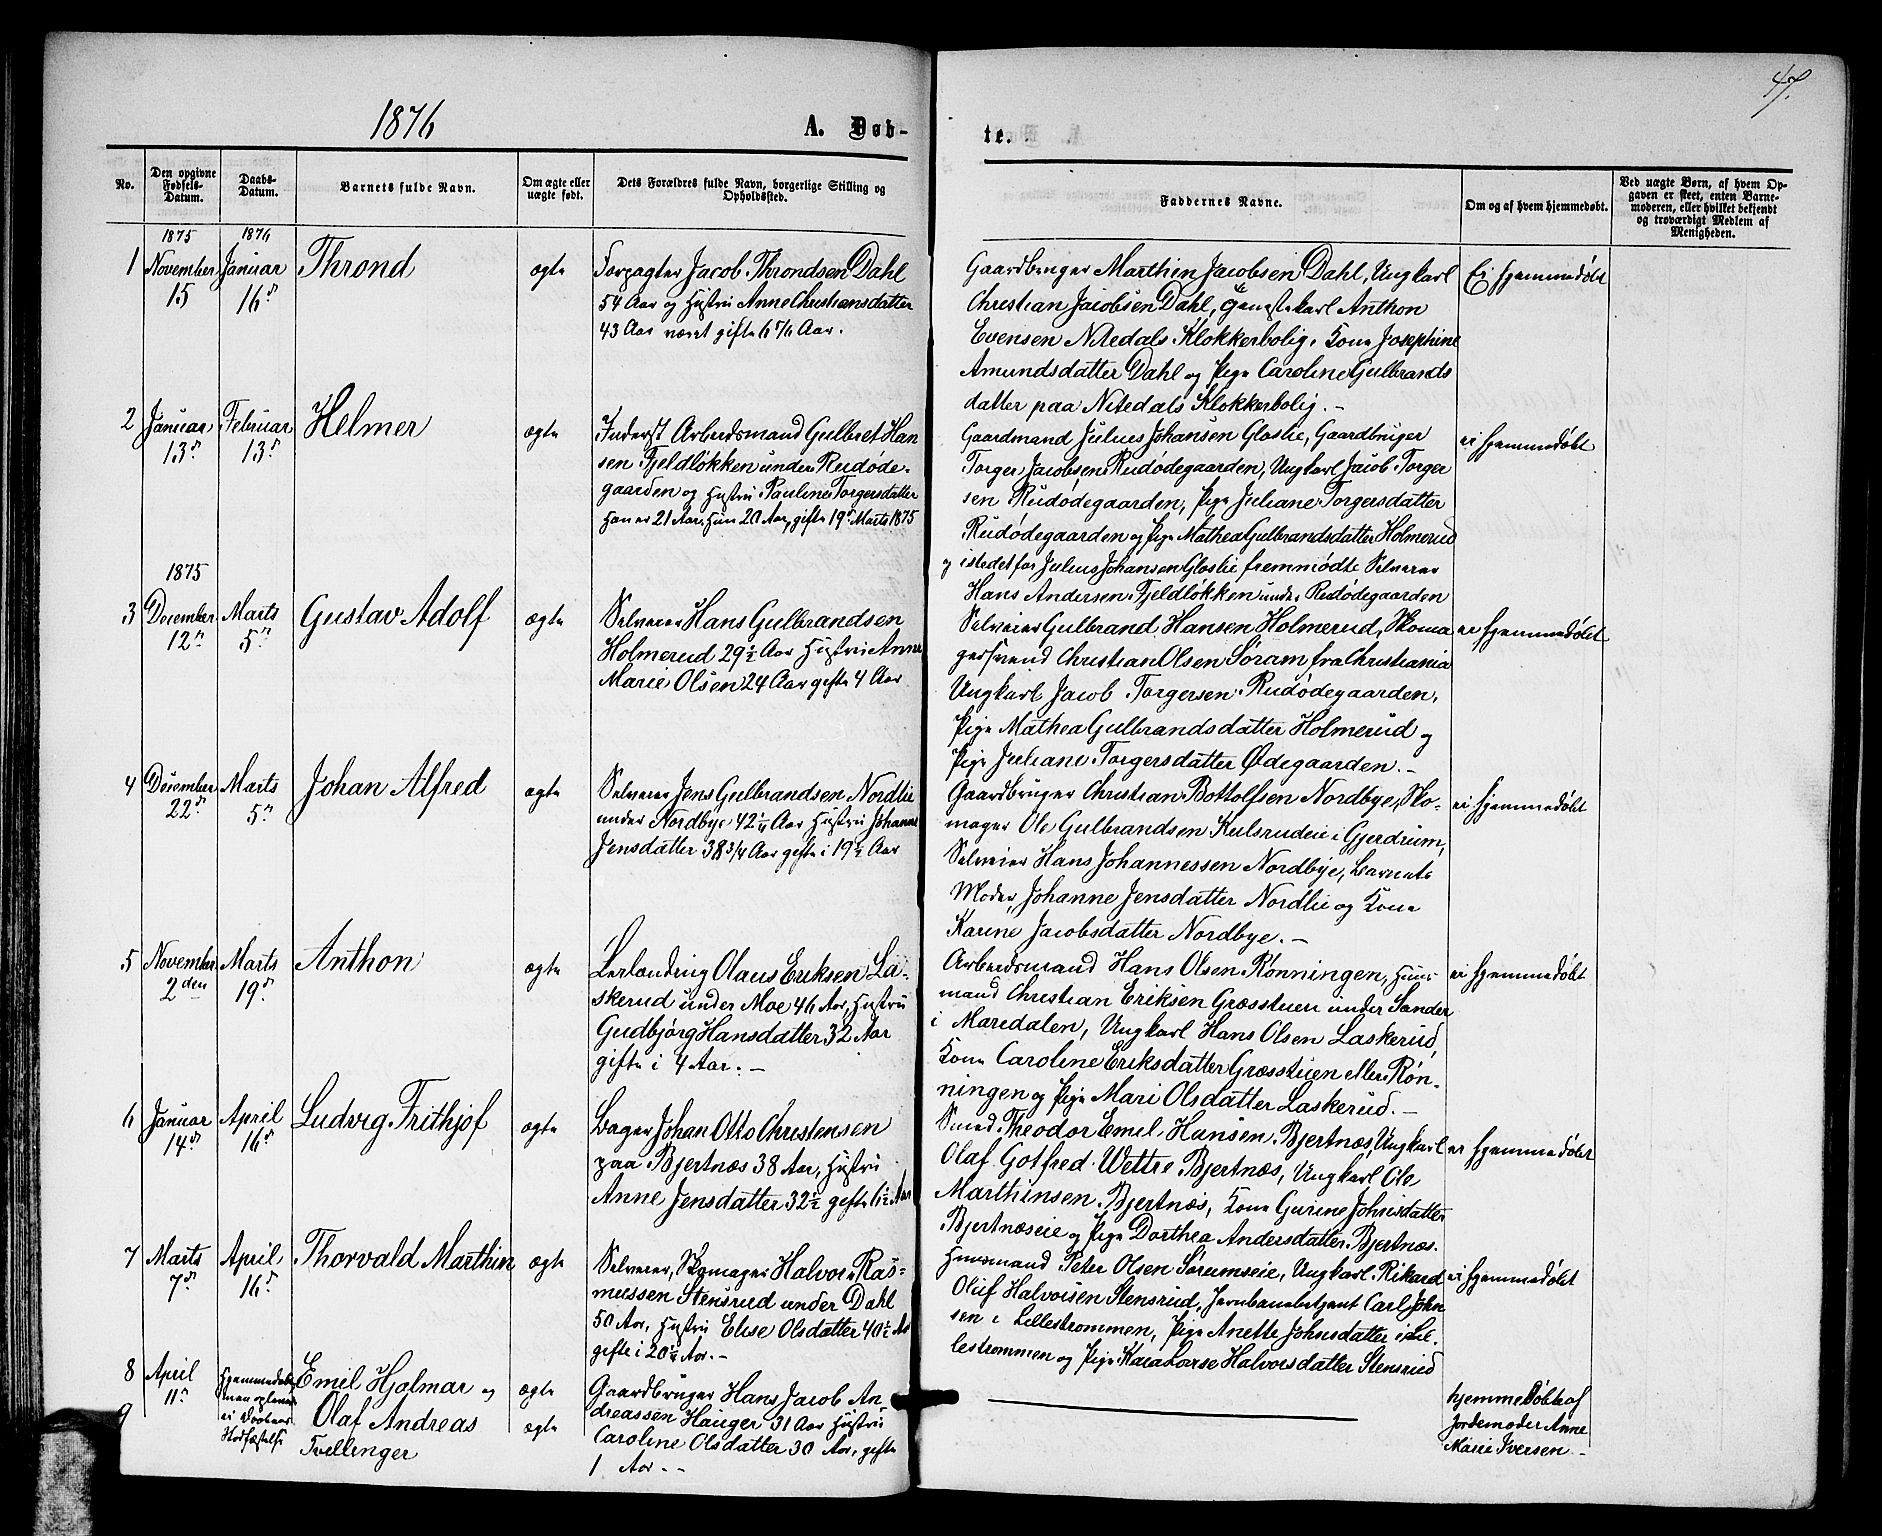 47.
1876
A. Døb-
te.
No.
Den opgivne Fødsels-Datum.
Daabs-Datum.
Barnets fulde Navn.
Om ægte eller uægte født.
Dets Forældres fulde Navn, borgerlige Stilling og Opholdssted.
Faddernes Navne.
Om og af hvem hjemmedøbt.
Ved uægte Børn, af hvem Opgaven er skeet, enten Barnemoderen, eller hvilket bekjendt og troværdigt Medlem af Menigheden.
1 1875 November 15 1876 Januar 16de Thrond ægte
Forpagter Jacob Throndsen Dahl
54 Aar og Hustru Anne Christiansdatter
43 Aar været gifte 6 7/6 Aar.
Gaardbruger Marthin Jacobsen Dahl, Ungkarl
Christian Jacobsen Dahl, Tjenestekarl Anthon
Evensen Nitedals Klokkerbolig, Kone Josephine
Amundsdatter Dahl og Pige Caroline Gulbrands
datter paa Nitedals Klokkerbolig.-
Ei hjemmedøbt
2 Januar 13de Februar 13de Helmer ægte
Inderst Arbeidsmand Gulbret Han
sen Fjeldløkken under Rudøde-
gaarden og Hustru Pauline Torgersdatter
Han er 21 Aar, Hun 20 Aar, gifte 19de Marts 1875
Gaardmand Julius Johansen Gloslie, Gaardbruger
Torger Jacobsen Rudødegaarden, Ungkarl Jacob Torger
sen Rudødegaarden, Pige Juliane Torgersdatter
Rudødegaarden og Pige Mathea Gulbrandsdatter Holmerud
og istedet for Julius Johansen Gloslie fremmødte Selveier
Hans Andersen Fjeldløkken under Rudødegaarden
ei hjemmedøbt
3 1875 December 12te Marts 5te Gustav Adolf ægte
Selveier Hans Gulbrandsen
Holmerud 29 1/2 Aar Hustru Anne
Marie Olsen 24 Aar gifte 4 Aar
Selveier Gulbrand Hansen Holmerud, Skoma
gersvend Christian Olsen Søram fra Christiania
Ungkarl Jacob Torgersen Rudødegaarden,
Pige Mathea Gulbrandsdatter Holmerud og
Pige Juliane Torgersdatter Ødegaarden.-
ei hjemmedøbt
4 December 22de Marts 5te Johan Alfred ægte
Selveier Jens Gulbrandsen Nordlie
under Nordbye 42 1/4 Aar Hustru Johanne
Jensdatter 38 3/4 Aar gifte i 19 1/2 Aar
Gaardbruger Christian Bottolfsen Nordbye, Sko-
mager Ole Gulbrandsen Kulsrudeie i Gjerdrum,
Selveier Hans Johannessen Nordbye, Barnets
Moder, Johanne Jensdatter Nordlie og Kone
Karine Jacobsdatter Nordbye.-
ei hjemmedøbt
5 November 2den Marts 19de Anthon ægte
Lerlending Olaus Eriksen La-
skerud under Moe 46 Aar, Hustru
Gudbjørg Hansdatter 32 Aar
gifte i 4 Aar.-
Arbeidsmand Hans Olsen Rønningen, Huus-
mand Christian Eriksen Græsstuen under Sander
i Maredalen, Ungkarl Hans Olsen Laskerud,
Kone Caroline Eriksdatter Græsstuen eller Røn-
ningen og Pige Mari Olsdatter Laskerud.-
ei hjemmedøbt
6 Januar 14de April 16de Ludvig Frithjof ægte
Bager Johan Otto Christensen
paa Bjertnæs 38 Aar, Hustru
Anne Jensdatter 32 1/2 gifte 6 1/2 Aar
Smed Theodor Emil Hansen Bjertnæs, Ungkarl
Olaf Gotfred Wettre Bjertnæs, Ungkarl Ole
Marthinsen Bjertnæs, Kone Gurine Johnsdatter
Bjertnæseie og Pige Dorthea Andersdatter Bjertnæs.
ei hjemmedøbt
7 Marts 7de April 16de Thorvald Marthin ægte
Selveier, Skomager Halvor Ras-
mussen Stensrud under Dahl
50 Aar, Hustru Elise Olsdatter 40 1/2 Aar
gifte i 20 1/4 Aar.-
Huusmand Peter Olsen Sørumseie, Ungkarl Rikard
Oluf Halvorsen Stensrud, Jernbanebetjent Carl John
sen i Lillestrømmen, Pige Anette Johnsdatter i Lil
lestrømmen og Pige Kaia Lovise Halvorsdatter Stensrud
ei hjemmedøbt
8 April 11te Hjemmedøbte
9
Emil Hjalmar og
Olaf Andreas
Tvillinger
ægte
ægte
Gaardbruger Hans Jacob An-
dreassen Hauger 31 Aar Hustru
Caroline Olsdatter 30 Aar, gifte
1 Aar.-
hjemmedøbte af
Jordemoder Anne
Marie Iversen -